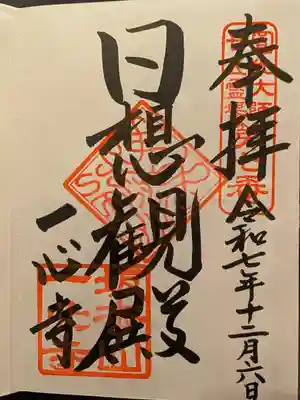 奉拝
令和七年十二月六日
日想観殿
一心寺